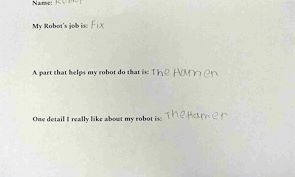 Name:
My Robot's job is: Fix
A part that helps my robot do that is: The Hamer
One detail I really like about my robot is: The Hamer